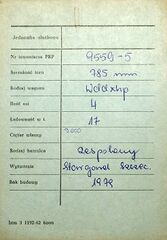 Jednostka służbowa
Nr inwentarza PKP 9559-5
Szerokość toru 785 mm
Rodzaj wagonu Wddxhp
Ilość osi 4
Ładowność w t. 17
Ciężar własny 9.000
Rodzaj hamulca zespolony
Wytwórnia Stargard Szczec.
Rok budowy 1978